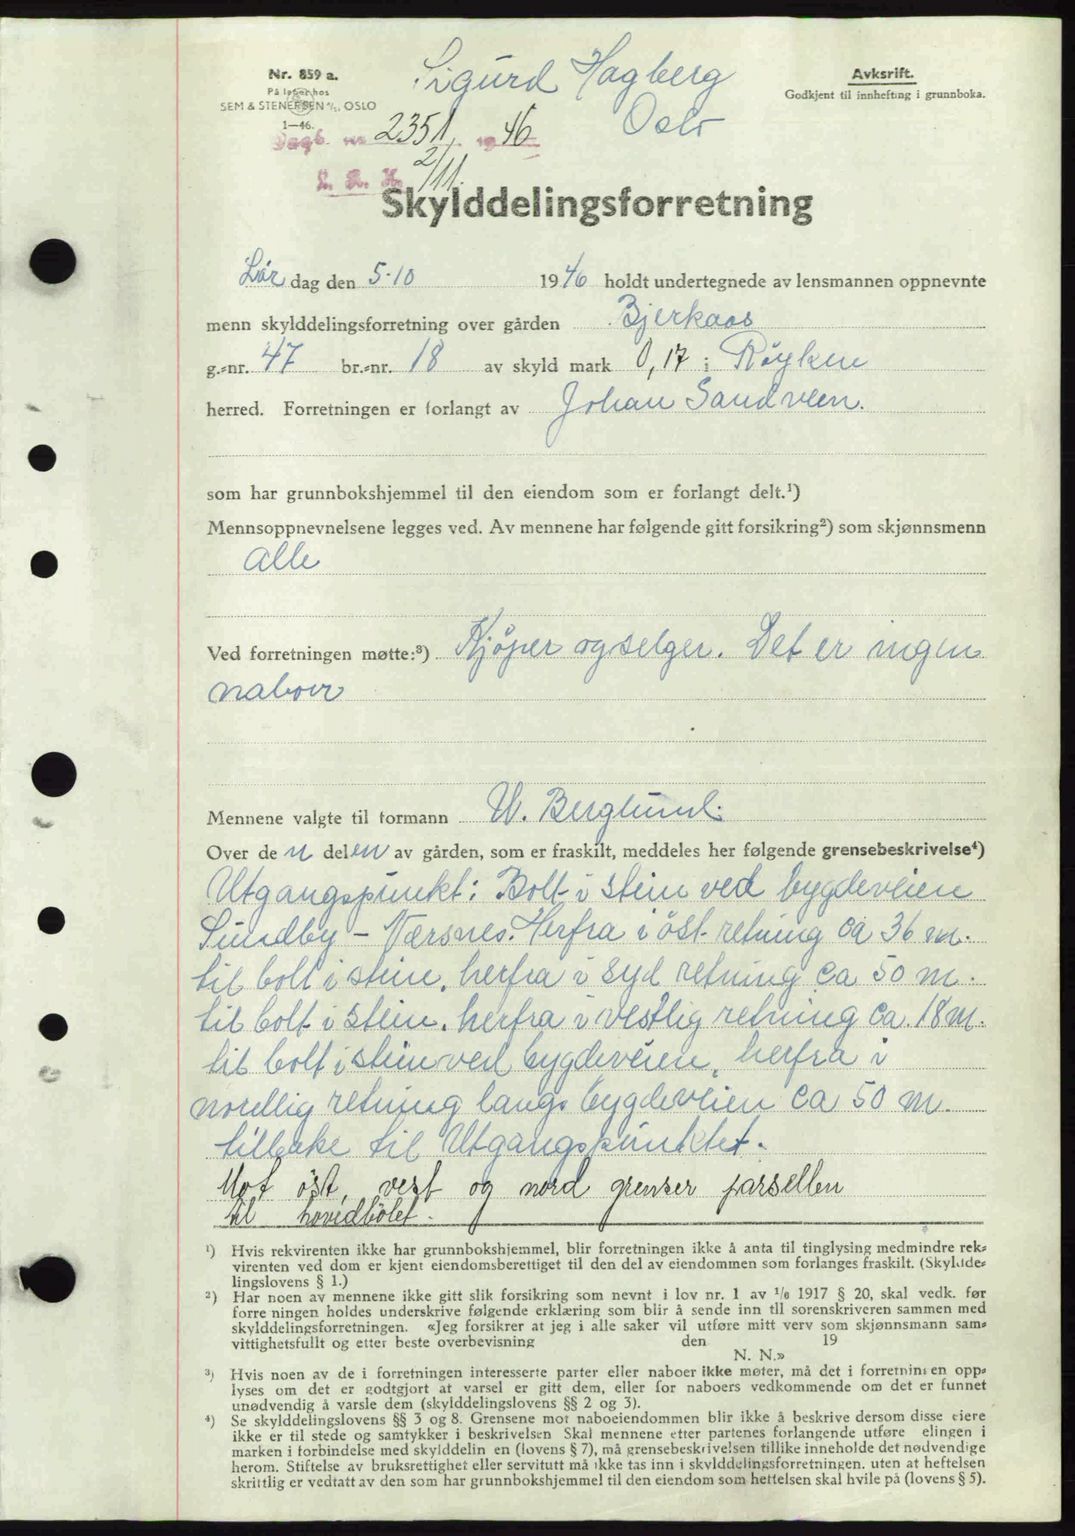 Nr. 859 a.
På lager hos
SEM & STENERSEN A/S, OSLO
1—46.
Sigurd Hagberg
Oslo
Avksrift.
Godkjent til innhefting i grunnboka.
Dagb. nr 2351, 1946
2/11.
L. R. H.
Skylddelingsforretning
Lør dag den 5-10 1946 holdt undertegnede av lensmannen oppnevnte
menn skylddelingsforretning over gården Bjerkaas
g.-nr. 47 br.-nr. 18 av skyld mark 0,17 i Røyken
herred. Forretningen er forlangt av Johan Sandveen.
som har grunnbokshjemmel til den eiendom som er forlangt delt.¹)
Mennsoppnevnelsene legges ved. Av mennene har følgende gitt forsikring²) som skjønnsmenn
alle
Ved forretningen møtte:³) Kjöper og selger. Det er ingen
naboer
Mennene valgte til formann W. Berglund.
Over de n delen av gården, som er fraskilt, meddeles her følgende grensebeskrivelse⁴)
Utgangspunkt: Bolt i stein ved bygdeveien
Sundby – Nærsnes. Herfra i öst retning ca 36 m.
til bolt i stein, herfra i syd retning ca 50 m.
til bolt i stein, herfra i vestlig retning ca. 18 m.
til bolt i stein ved bygdeveien, herfra i
nordlig retning langs bygdeveien ca 50 m.
tilbake til Utgangspunktet.
Mot öst, vest og nord grenser parsellen
til hovedbölet.
¹) Hvis rekvirenten ikke har grunnbokshjemmel, blir forretningen ikke å anta til tinglysing medmindre rek-
virenten ved dom er kjent eiendomsberettiget til den del av eiendommen som forlanges fraskilt. (Skyldde-
lingslovens § 1.)
²) Har noen av mennene ikke gitt slik forsikring som nevnt i lov nr. 1 av 1/6 1917 § 20, skal vedk. før
forretningen holdes underskrive følgende erklæring som blir å sende inn til sorenskriveren sammen med
skylddelingsforretningen. «Jeg forsikrer at jeg i alle saker vil utføre mitt verv som skjønnsmann sam-
vittighetsfullt og etter beste overbevisning den 19
N. N.»
³) Hvis noen av de i forretningen interesserte parter eller naboer ikke møter, må det i forretningen opp-
lyses om det er godtgjort at varsel er gitt dem, eller for naboers vedkommende om det er funnet
unødvendig å varsle dem (skylddelingslovens §§ 2 og 3).
⁴) Se skylddelingslovens §§ 3 og 8. Grensene mot naboeiendommen blir ikke å beskrive dersom disse eiere
ikke er til stede og samtykker i beskrivelsen Skal mennene etter partenes forlangende utføre elingen i
marken i forbindelse med skylddelin en (lovens § 7), må grensebeskrivelsen tillike inneholde det nødvendige
herom. Stiftelse av bruksrettighet eller servitutt må ikke tas inn i skylddelingsforretningen. uten at heftelsen
skriftlig er vedtatt av den som har grunnbokshjemmel til den eiendom som heftelsen skal hvile på (lovens § 5).